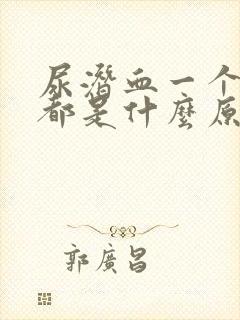 尿潛血一个
都是什麼原
郭廣昌